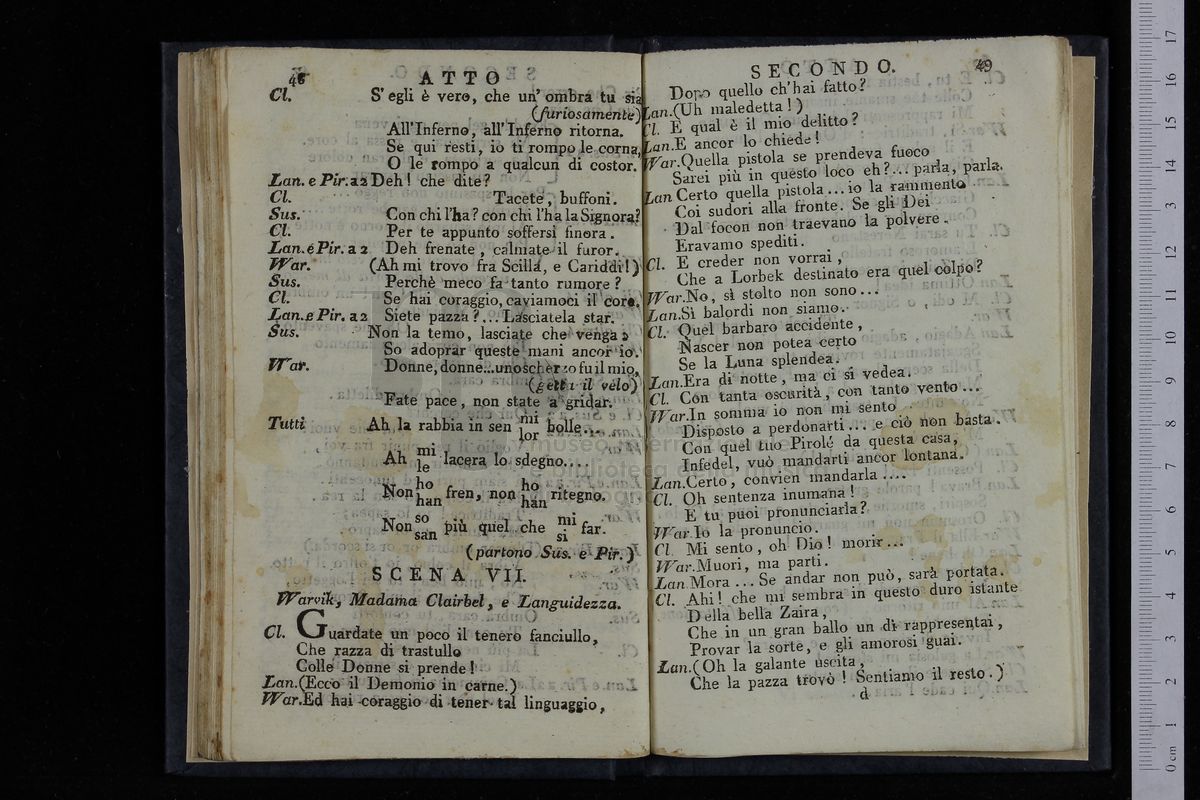 48 ATTO
Cl. S'egli è vero, che un' ombra tu sia
(furiosamente)
All'Inferno, all'Inferno ritorna.
Se qui resti, io ti rompo le corna,
O le rompo a qualcun di costor.
Lan. e Pir. a 2 Deh! che dite?
Cl. Tacete, buffoni.
Sus. Con chi l'ha? con chi l'ha la Signora?
Cl. Per te appunto soffersi finora.
Lan. e Pir. a 2 Deh frenate, calmate il furor.
War. (Ah mi trovo fra Scilla, e Cariddi!)
Sus. Perchè meco fa tanto rumore?
Cl. Se hai coraggio, caviamoci il core.
Lan. e Pir. a 2 Siete pazza?... Lasciatela star.
Sus. Non la temo, lasciate che venga
So adoprar queste mani ancor io.
War. Donne, donne... uno scherzo fu il mio,
(getta il velo)
Fate pace, non state a gridar.
Tutti Ah la rabbia in sen mi lor bolle...
Ah mi le lacera lo sdegno....
Non ho han fren, non ho han ritegno.
Non so san più quel che mi si far.
(partono Sus. e Pir.)
SCENA VII.
Warvik, Madama Clairbel, e Languidezza.
Cl. Guardate un poco il tenero fanciullo,
Che razza di trastullo
Colle Donne si prende!
Lan. (Ecco il Demonio in carne.)
War. Ed hai coraggio di tener tal linguaggio,
SECONDO. 49
Dopo quello ch'hai fatto?
Lan. (Uh maledetta!)
Cl. E qual è il mio delitto?
Lan. E ancor lo chiede!
War. Quella pistola se prendeva fuoco
Sarei più in questo loco eh?... parla, parla.
Lan Certo quella pistola... io la rammento
Coi sudori alla fronte. Se gli Dei
Dal focon non traevano la polvere.
Eravamo spediti.
Cl. E creder non vorrai,
Che a Lorbek destinato era quel colpo?
War. No, sì stolto non sono...
Lan. Sì balordi non siamo.
Cl. Quel barbaro accidente,
Nascer non potea certo
Se la Luna splendea.
Lan. Era di notte, ma ci si vedea.
Cl. Con tanta oscurità, con tanto vento...
War. In somma io non mi sento
Disposto a perdonarti... e ciò non basta.
Con quel tuo Pirolé da questa casa,
Infedel, vuò mandarti ancor lontana.
Lan. Certo, convien mandarla....
Cl. Oh sentenza inumana!
E tu puoi pronunciarla?
War. Io la pronuncio.
Cl. Mi sento, oh Dio! morir...
War. Muori, ma parti.
Lan Mora... Se andar non può, sarà portata.
Cl. Ahi! che mi sembra in questo duro istante
Della bella Zaira,
Che in un gran ballo un dì rappresentai,
Provar la sorte, e gli amorosi guai.
Lan. (Oh la galante uscita,
Che la pazza trovò! Sentiamo il resto.)
d